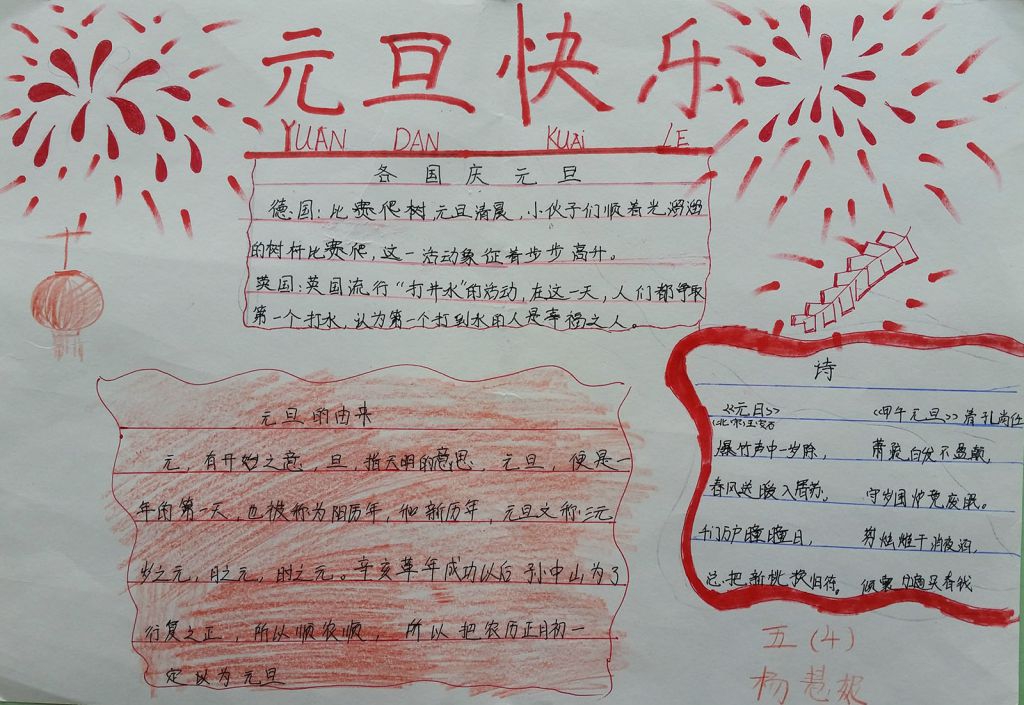 元旦快乐
YUAN DAN KUAi LE
各国庆元旦
德国:比赛爬树元旦清晨,小伙子们顺着光溜溜
的树杆比赛爬,这一活动象征着步步高升。
英国:英国流行“打井水”的活动,在这一天,人们都争取
第一个打水,认为第一个打到水的人是幸福之人。
元旦的由来
元,有开始之意,旦,指天明的意思,元旦,便是一
年的第一天,也被称为阳历年,和新历年,元旦又称三元
岁之元,月之元,时之元。辛亥革年成功以后孙中山为了
行夏之正,所以顺农顺,所以把农历正月初一
定以为元旦
诗
《元日》
(北宋)王安石
爆竹声中一岁除,
春风送暖入屠苏。
千门万户曈曈日,
总把新桃换旧符。
《甲午元旦》清孔尚任
萧疏白发不盈颠,
守岁围炉竟废眠。
剪烛催干消夜酒,
倾囊 买春钱
五(4)
杨慧妮